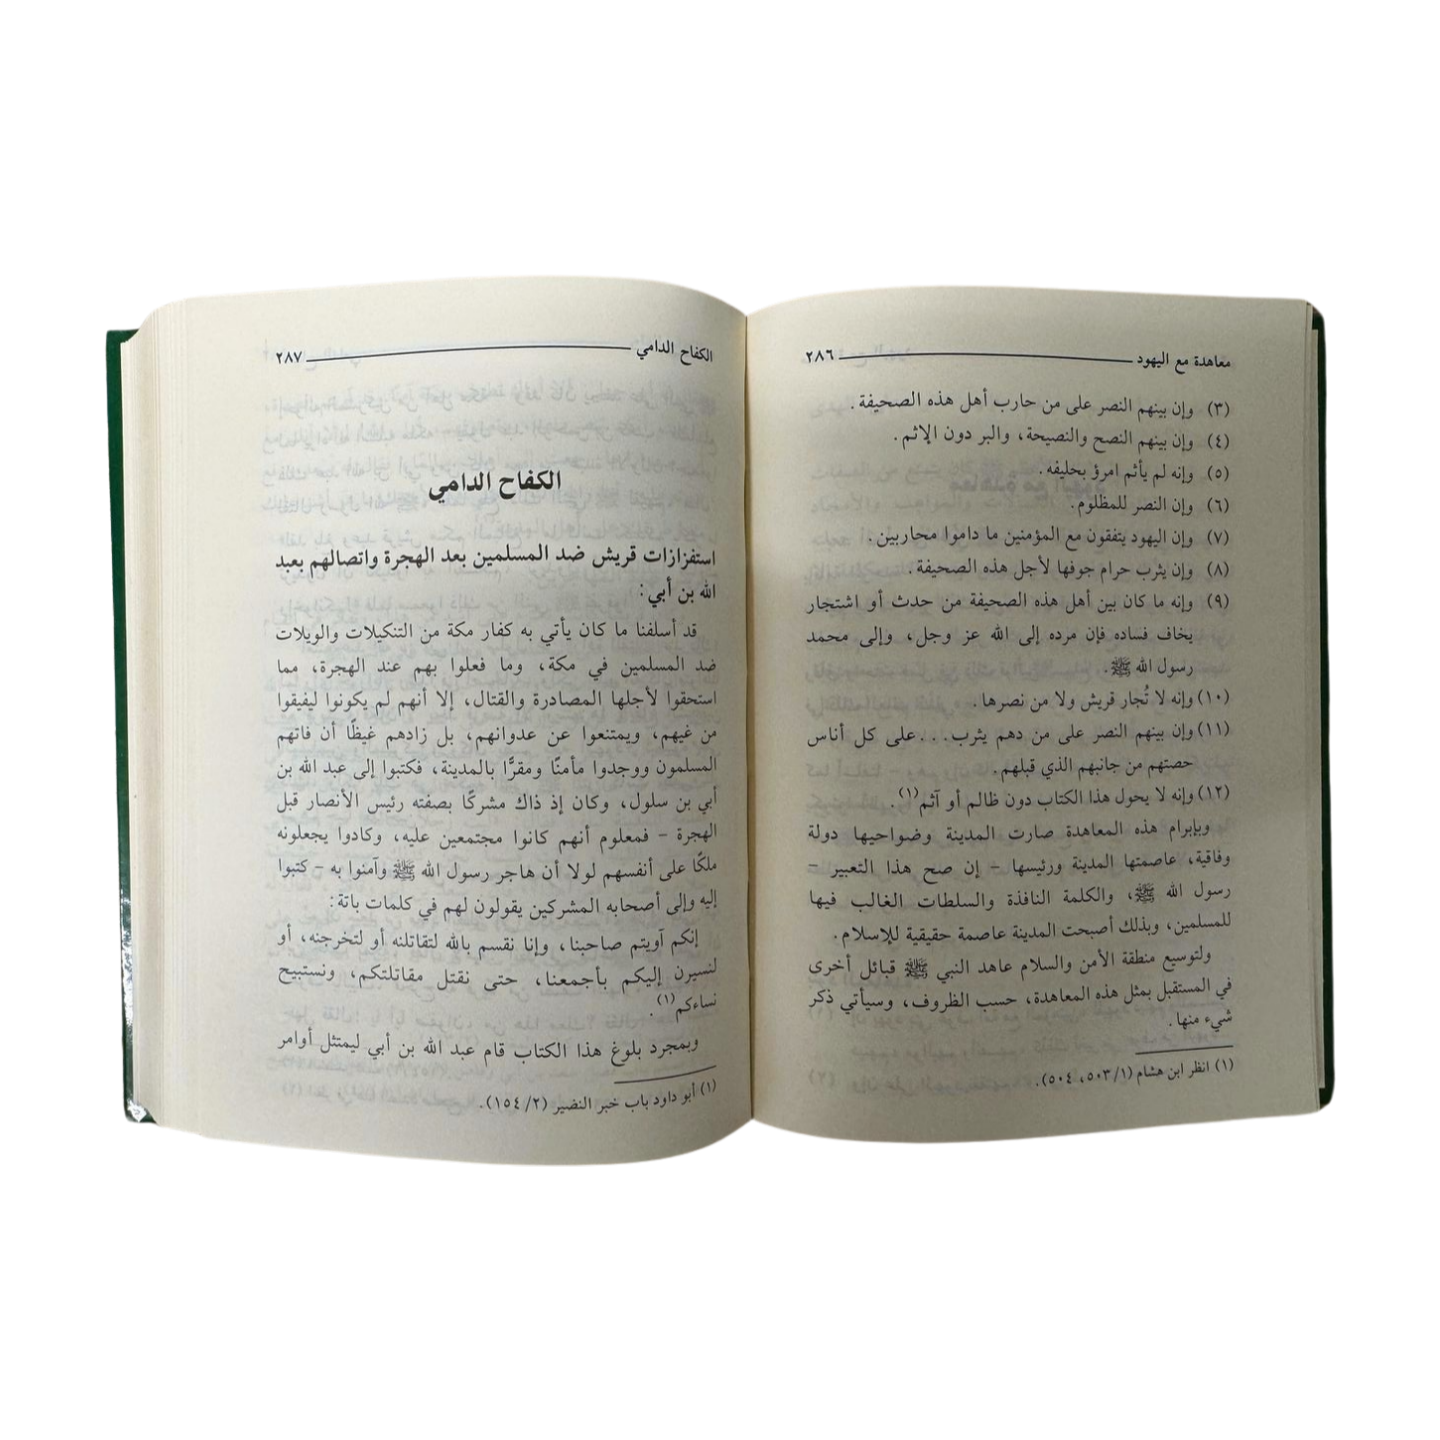 معاهدة مع اليهود ٢٨٦
(٣) وإن بينهم النصر على من حارب أهل هذه الصحيفة.
(٤) وإن بينهم النصح والنصيحة، والبر دون الإثم.
(٥) وإنه لم يأثم امرؤ بحليفه.
(٦) وإن النصر للمظلوم.
(٧) وإن اليهود يتفقون مع المؤمنين ما داموا محاربين.
(٨) وإن يثرب حرام جوفها لأجل هذه الصحيفة.
(٩) وإنه ما كان بين أهل هذه الصحيفة من حدث أو اشتجار
يخاف فساده فإن مرده إلى الله عز وجل، وإلى محمد
رسول الله ﷺ.
(١٠) وإنه لا تُجار قريش ولا من نصرها.
(١١) وإن بينهم النصر على من دهم يثرب... على كل أناس
حصتهم من جانبهم الذي قبلهم.
(١٢) وإنه لا يحول هذا الكتاب دون ظالم أو آثم(١).
وبإبرام هذه المعاهدة صارت المدينة وضواحيها دولة
وفاقية، عاصمتها المدينة ورئيسها - إن صح هذا التعبير -
رسول الله ﷺ، والكلمة النافذة والسلطات الغالب فيها
للمسلمين، وبذلك أصبحت المدينة عاصمة حقيقية للإسلام.
ولتوسيع منطقة الأمن والسلام عاهد النبي ﷺ قبائل أخرى
في المستقبل بمثل هذه المعاهدة، حسب الظروف، وسيأتي ذكر
شيء منها.
(١) انظر ابن هشام (٥٠٣/١، ٥٠٤).
الكفاح الدامي ٢٨٧
الكفاح الدامي
استفزازات قريش ضد المسلمين بعد الهجرة واتصالهم بعبد
الله بن أبي:
قد أسلفنا ما كان يأتي به كفار مكة من التنكيلات والويلات
ضد المسلمين في مكة، وما فعلوا بهم عند الهجرة، مما
استحقوا لأجلها المصادرة والقتال، إلا أنهم لم يكونوا ليفيقوا
من غيهم، ويمتنعوا عن عدوانهم، بل زادهم غيظًا أن فاتهم
المسلمون ووجدوا مأمنًا ومقرًّا بالمدينة، فكتبوا إلى عبد الله بن
أبي بن سلول، وكان إذ ذاك مشركًا بصفته رئيس الأنصار قبل
الهجرة - فمعلوم أنهم كانوا مجتمعين عليه، وكادوا يجعلونه
ملكًا على أنفسهم لولا أن هاجر رسول الله ﷺ وآمنوا به - كتبوا
إليه وإلى أصحابه المشركين يقولون لهم في كلمات باتة:
إنكم آويتم صاحبنا، وإنا نقسم بالله لتقاتلنه أو لتخرجنه، أو
لنسيرن إليكم بأجمعنا، حتى نقتل مقاتلتكم، ونستبيح
نساءكم(١).
وبمجرد بلوغ هذا الكتاب قام عبد الله بن أبي ليمتثل أوامر
(١) أبو داود باب خبر النضير (١٥٤/٢).